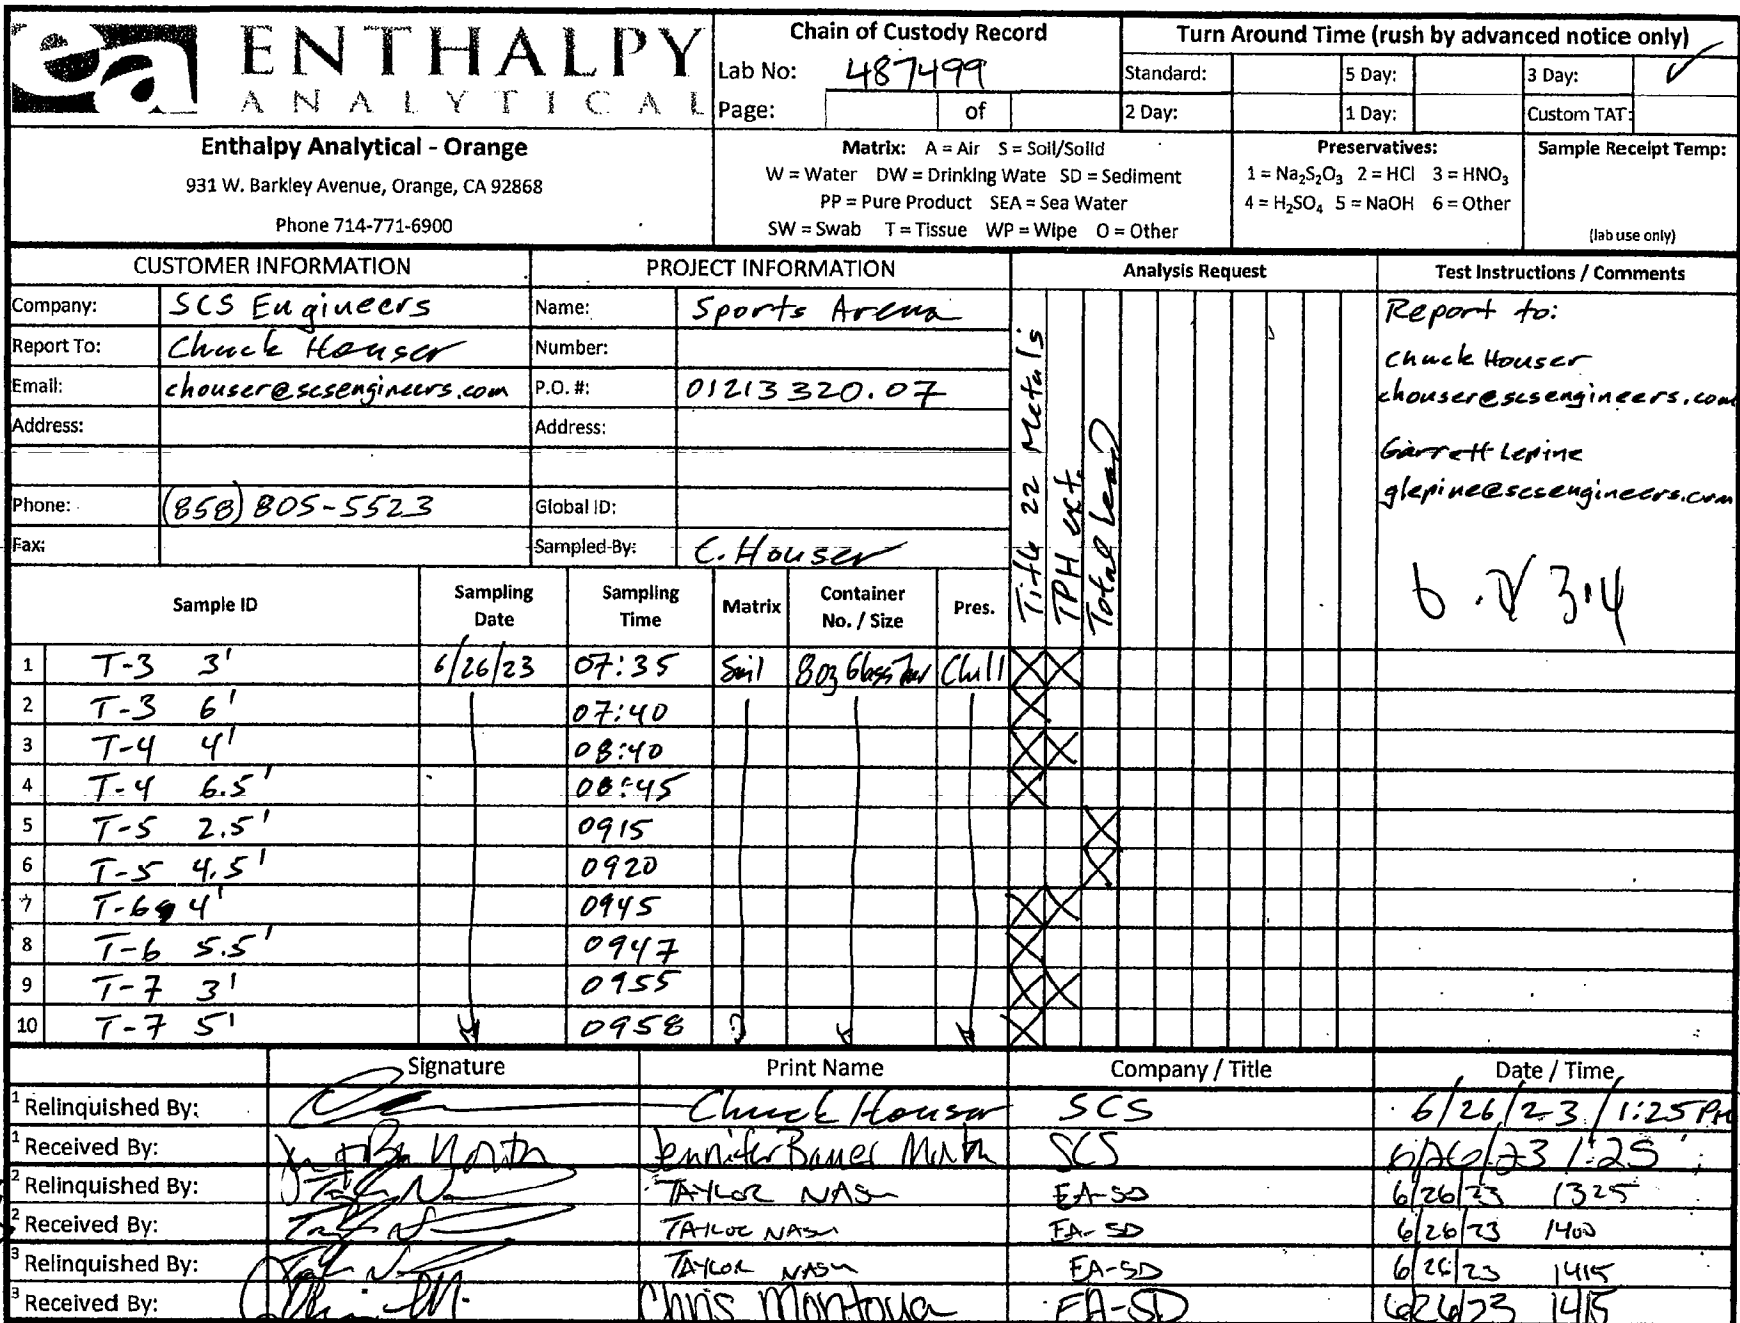 ea ENTHALPY
ANALYTICAL
Chain of Custody Record
Lab No: 487499
Page: of
Turn Around Time (rush by advanced notice only)
Standard: 5 Day: 3 Day: ✓
2 Day: 1 Day: Custom TAT:
Enthalpy Analytical - Orange
931 W. Barkley Avenue, Orange, CA 92868
Phone 714-771-6900
Matrix: A = Air S = Soil/Solid
W = Water DW = Drinking Wate SD = Sediment
PP = Pure Product SEA = Sea Water
SW = Swab T = Tissue WP = Wipe O = Other
Preservatives:
1 = Na₂S₂O₃ 2 = HCl 3 = HNO₃
4 = H₂SO₄ 5 = NaOH 6 = Other
Sample Receipt Temp:
(lab use only)
CUSTOMER INFORMATION
Company: SCS Engineers
Report To: Chuck Houser
Email: chouser@scsengineers.com
Address:
Phone: (858) 805-5523
Fax:
PROJECT INFORMATION
Name: Sports Arena
Number:
P.O. #: 01213320.07
Address:
Global ID:
Sampled By: C. Houser
Analysis Request
Title 22 Metals
TPH ext.
Total Lead
Test Instructions / Comments
Report to:
Chuck Houser
chouser@scsengineers.com
Garrett Lepine
glepine@scsengineers.com
3.4
Sample ID Sampling Date Sampling Time Matrix Container No. / Size Pres.
1 T-3 3' 6/26/23 07:35 Soil 8oz Glass Jar Chill X X
2 T-3 6' 07:40 X
3 T-4 4' 08:40 X X
4 T-4 6.5' 08:45 X
5 T-5 2.5' 0915 X
6 T-5 4.5' 0920 X
7 T-6 4' 0945 X X
8 T-6 5.5' 0947 X
9 T-7 3' 0955 X X
10 T-7 5' 0958 X
Signature Print Name Company / Title Date / Time
1 Relinquished By: Chuck Houser SCS 6/26/23 / 1:25 PM
1 Received By: Jennifer Bauer North SCS 6/26/23 1:25
2 Relinquished By: TAYLOR NASH EA-SD 6/26/23 1325
2 Received By: TAYLOR NASH EA-SD 6/26/23 1400
3 Relinquished By: TAYLOR NASH EA-SD 6/26/23 1415
3 Received By: Chris Montoya EA-SD 6/26/23 1415